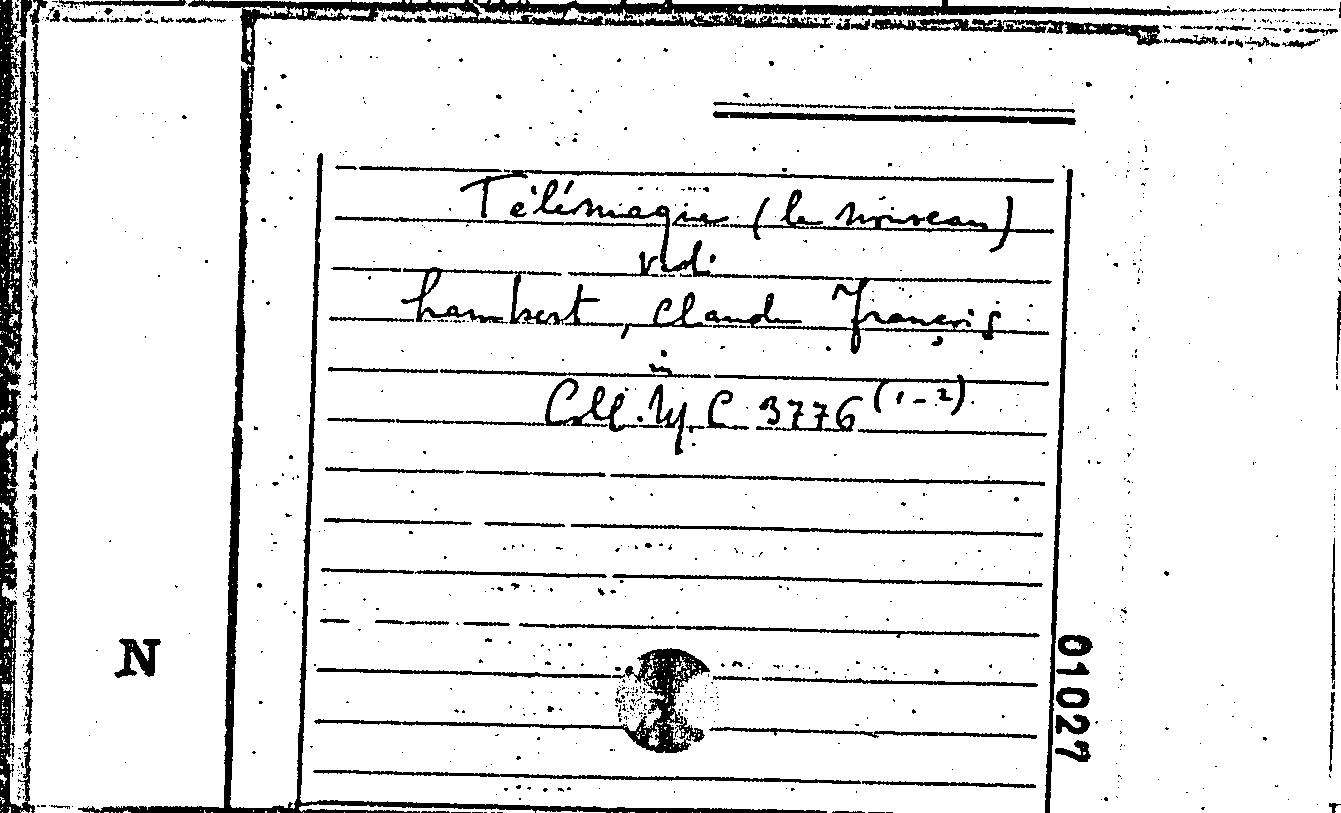 Télémaque (le nouveau)
vedi
Lambert, Claude François
in
Coll. C 3776 (1-2)
N
01027